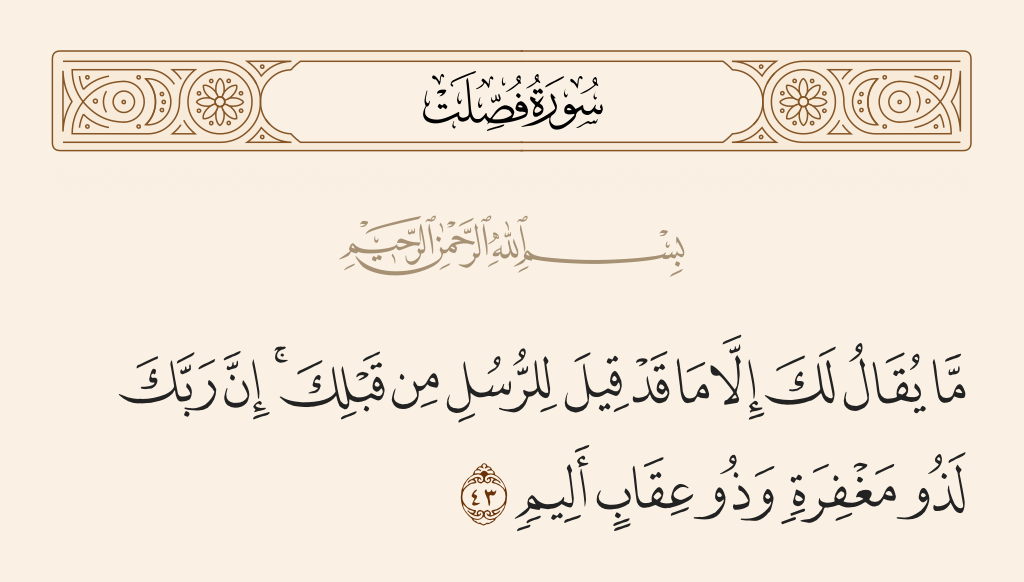 سُورَةُ فُصِّلَتْ
بِسْمِ ٱللَّهِ ٱلرَّحْمَٰنِ ٱلرَّحِيمِ
مَّا يُقَالُ لَكَ إِلَّا مَا قَدْ قِيلَ لِلرُّسُلِ مِن قَبْلِكَ ۚ إِنَّ رَبَّكَ
لَذُو مَغْفِرَةٍ وَذُو عِقَابٍ أَلِيمٍ ٤٣